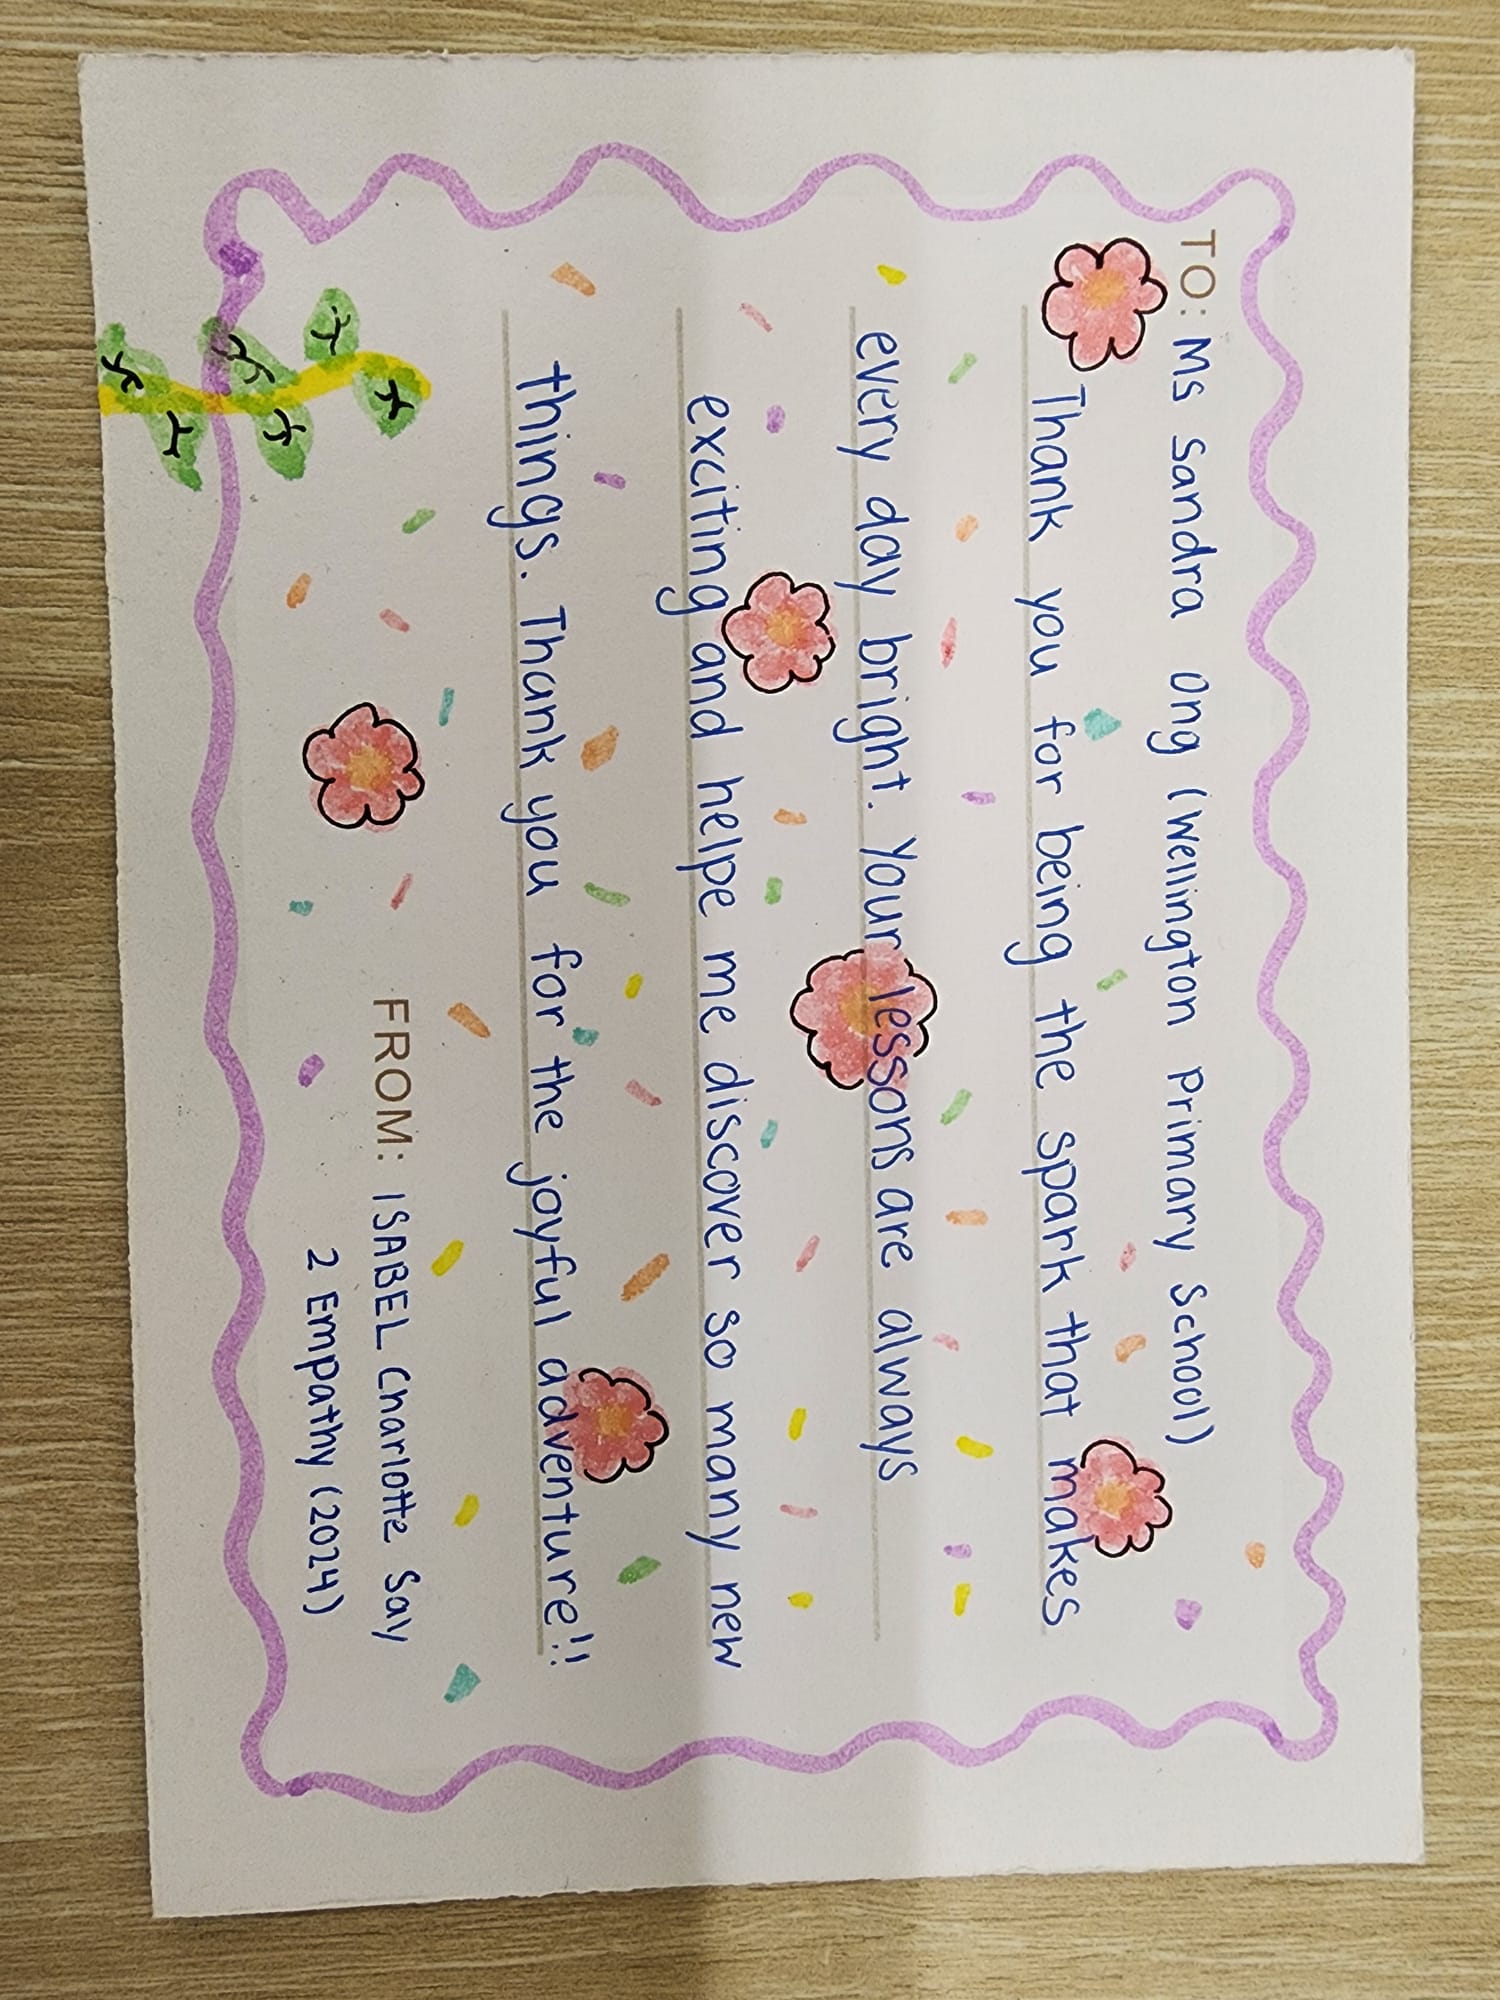 TO: Ms Sandra Ong (Wellington Primary School)
Thank you for being the spark that makes
every day bright. Your lessons are always
exciting and helpe me discover so many new
things. Thank you for the joyful adventure!!
FROM: ISABEL Charlotte Say
2 Empathy (2024)